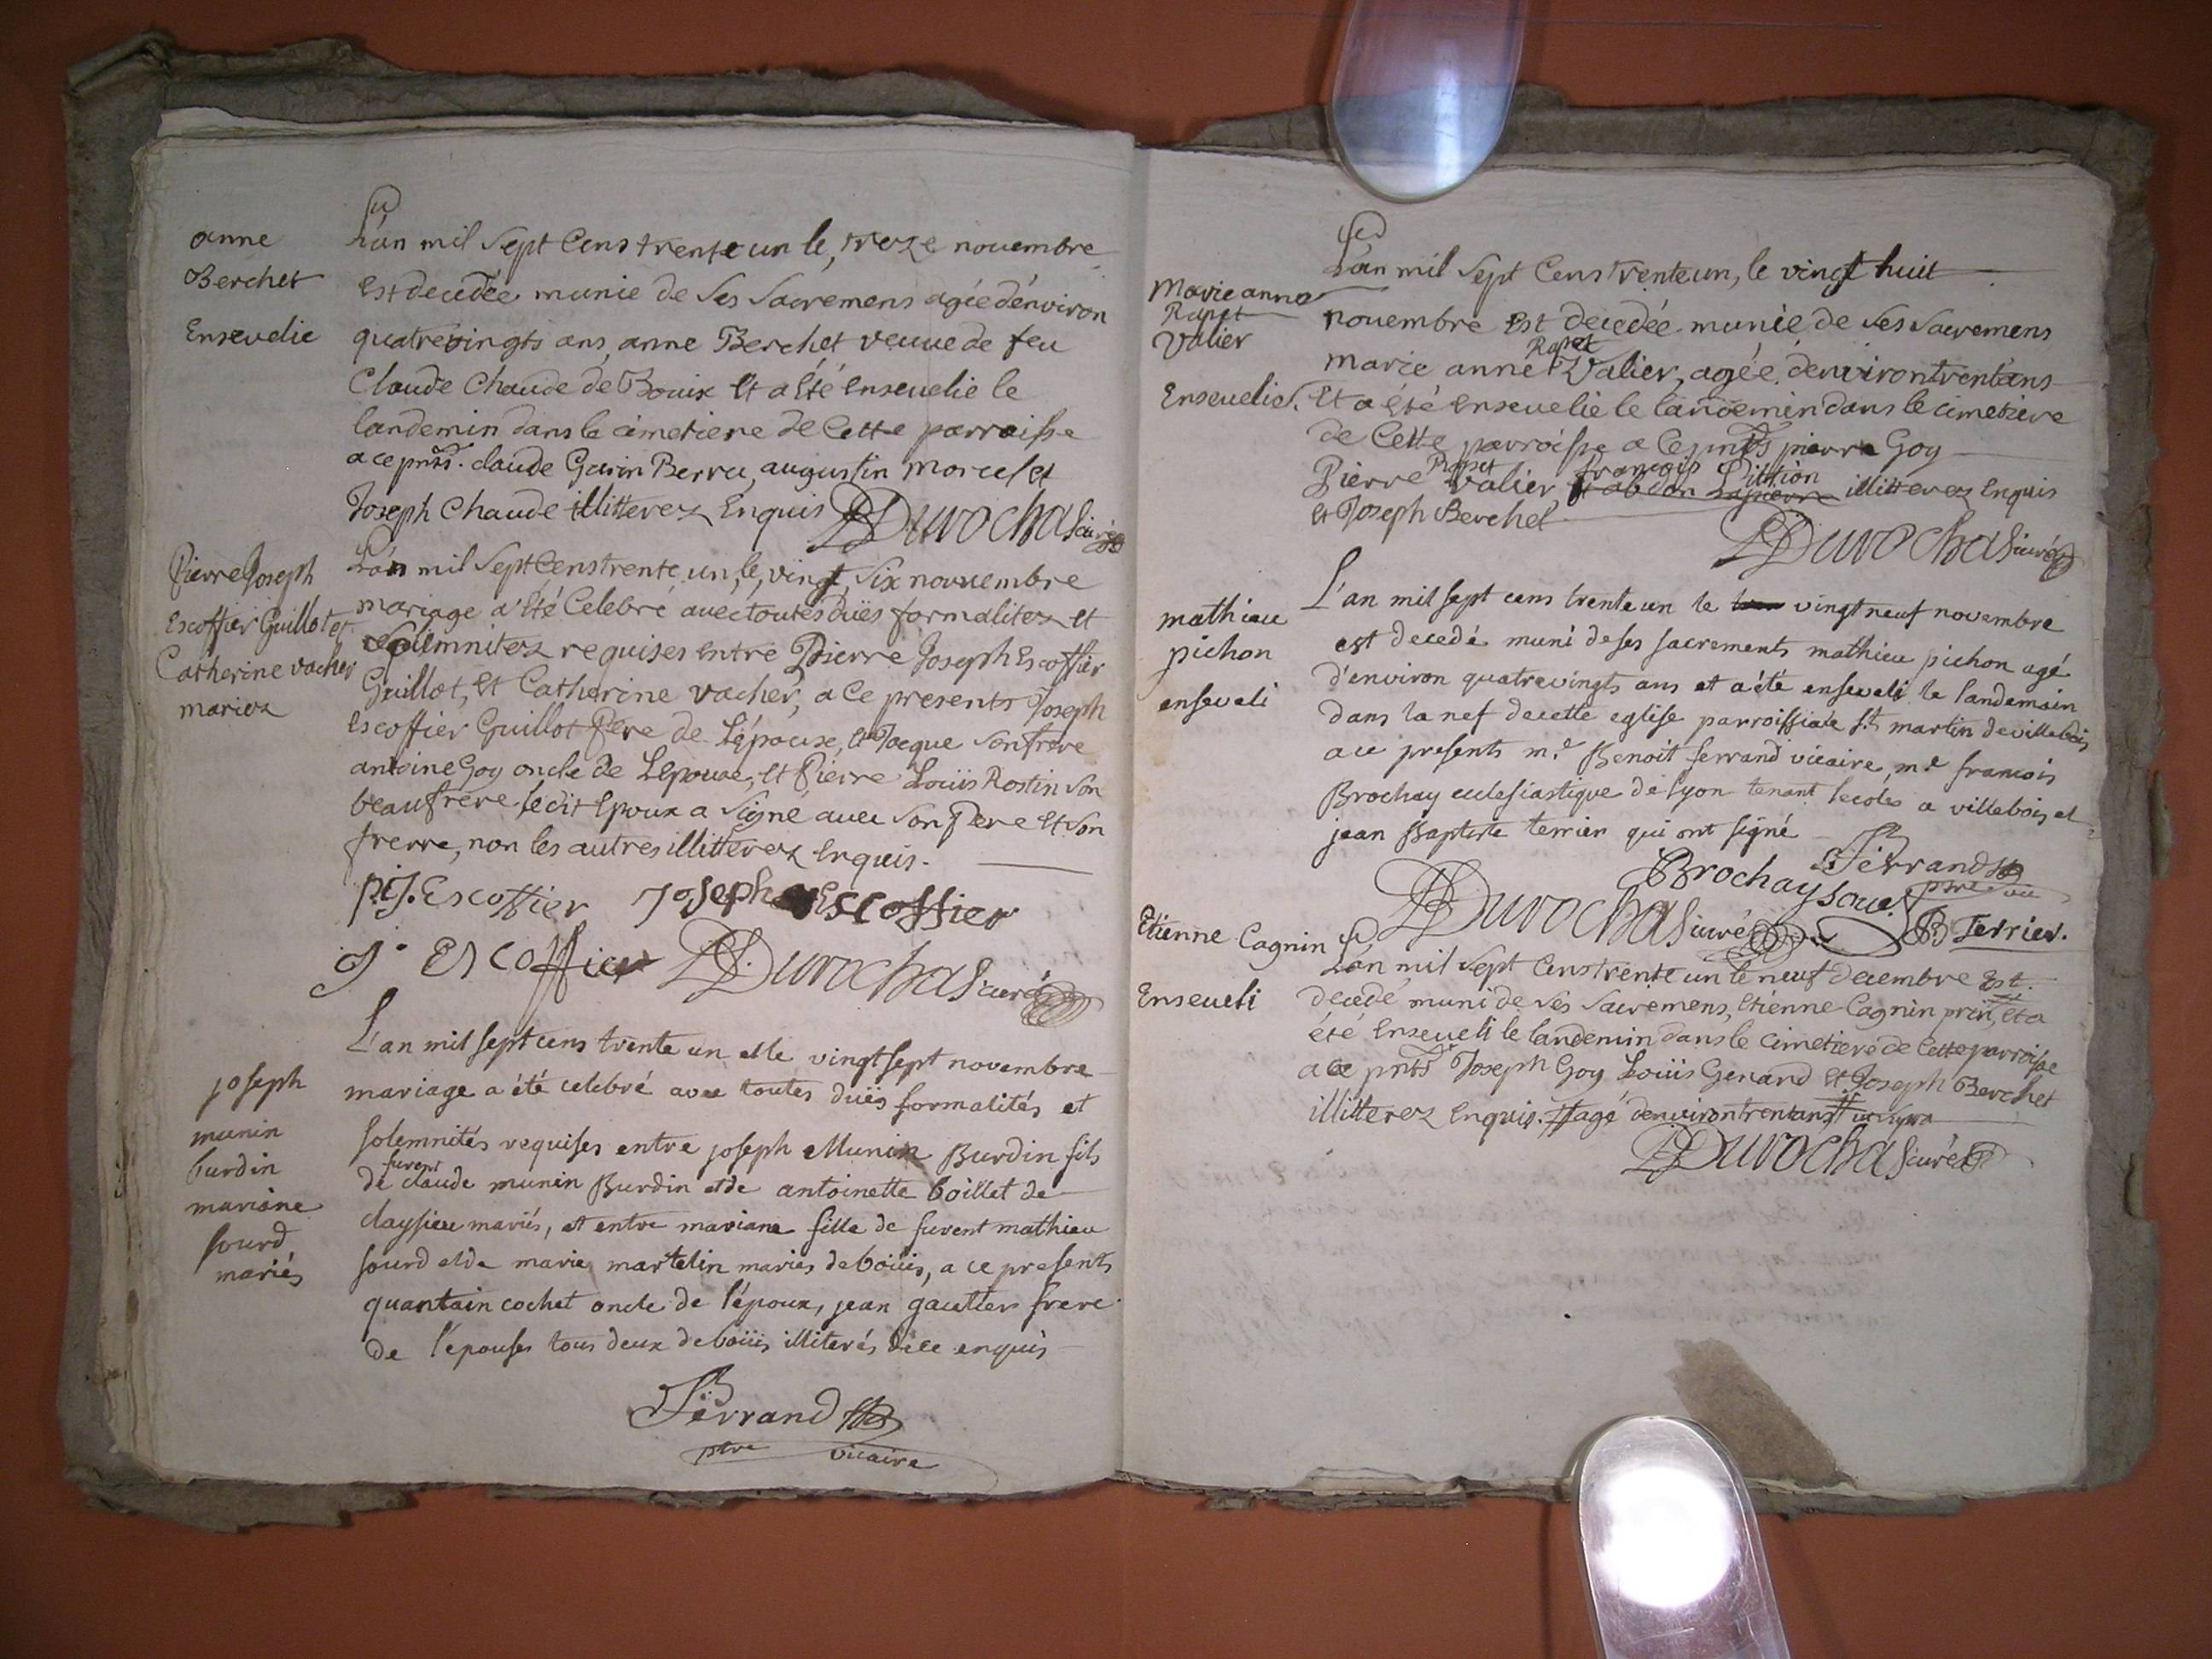 anne
Berchet
Ensevelie
L'an mil sept Cens trente un le, treze novembre
Est decedée munie de ses Sacremens agée d'environ
quatrevingts ans, anne Berchet veuve de feu
Claude Chaude de Bouix Et a Eté Enseuelie le
landemin dans le cimetiere de Cette parroisse
a ce pnts. claude Garin Berru, augustin Morcel et
Joseph Chaude illitterez Enquis Durochas curé
Pierre Joseph
Escoffier Guillot et
Catherine vacher
mariez
L'an mil Sept Cens trente un, le, vingt, Six novembre
mariage a Eté Celebré avec toutes dües formalitez et
Solemnitez requises entre Pierre Joseph Escoffier
Guillot, Et Catherine vacher, a Ce presents Joseph
Escoffier Guillot Pere de L'époux, et Jacque son frere
antoine Goy oncle de Lepouse, Et Pierre Louis Rostin son
beaufrere ledit Epoux a Signé avec Son Pere Et Son
frerre, non les autres illitterez Enquis.
P. J. Escoffier Joseph Escoffier
J. Escoffier Durochas curé
joseph
munin
burdin
mariane
sourd
mariés
L'an mil sept cens trente un et le vingt sept novembre
mariage a été celebré avec toutes düés formalités et
solemnités requises entre joseph Munin Burdin fils
de furent claude munin Burdin et de antoinette boillet de
claysieu mariés, et entre mariane fille de furent mathieu
sourd et de marie martelin mariés de boüis, a ce presents
quantain cochet oncle de l'époux, jean gautier frere
de l'épouses tous deux de boüis illiterés de ce enquis
Ferrand
ptre vicaire
Marie anne
Rapet
Valier
Enseuelie.
L'an mil Sept Cens trente un, le vingt huit
novembre Est decedée munie de ses Sacremens
Marie anne Rapet Valier, agée d'environ trent'ans
Et a été Enseuelie le landemin dans le cimetiere
de Cette parroisse a Ce pnts pierre Goy
Pierre Rapet Valier, françois Littion illitterez Enquis
Et Joseph Berchet
Durochas curé
mathieu
pichon
enseveli
L'an mil sept cens trente un le vingt neuf novembre
est decedé muni de ses sacrements mathieu pichon agé
d'environ quatrevingts ans et a été enseveli le landemain
dans la nef de cette eglise parroissiale st martin de villebois
a ce presents mre Benoit ferrand vicaire, mre francois
Brochay ecclesiastique de lyon tenant lecoles a villebois et
jean Baptiste terrier qui ont signé
Ferrand
ptre vic
Brochay
Durochas curé JB Terrier.
Etienne Cagnin
Enseveli
L'an mil Sept Cens trente un le neuf decembre Est
decedé muni de ses Sacremens, Etienne Cagnin prin, Et a
été Enseveli le landemin dans le Cimetiere de Cette parroisse
a Ce pnts Joseph Goy Loüis Genand Et Joseph Berchet
illitterez Enquis. # agé d'environ trent ans # ut supra
Durochas curé